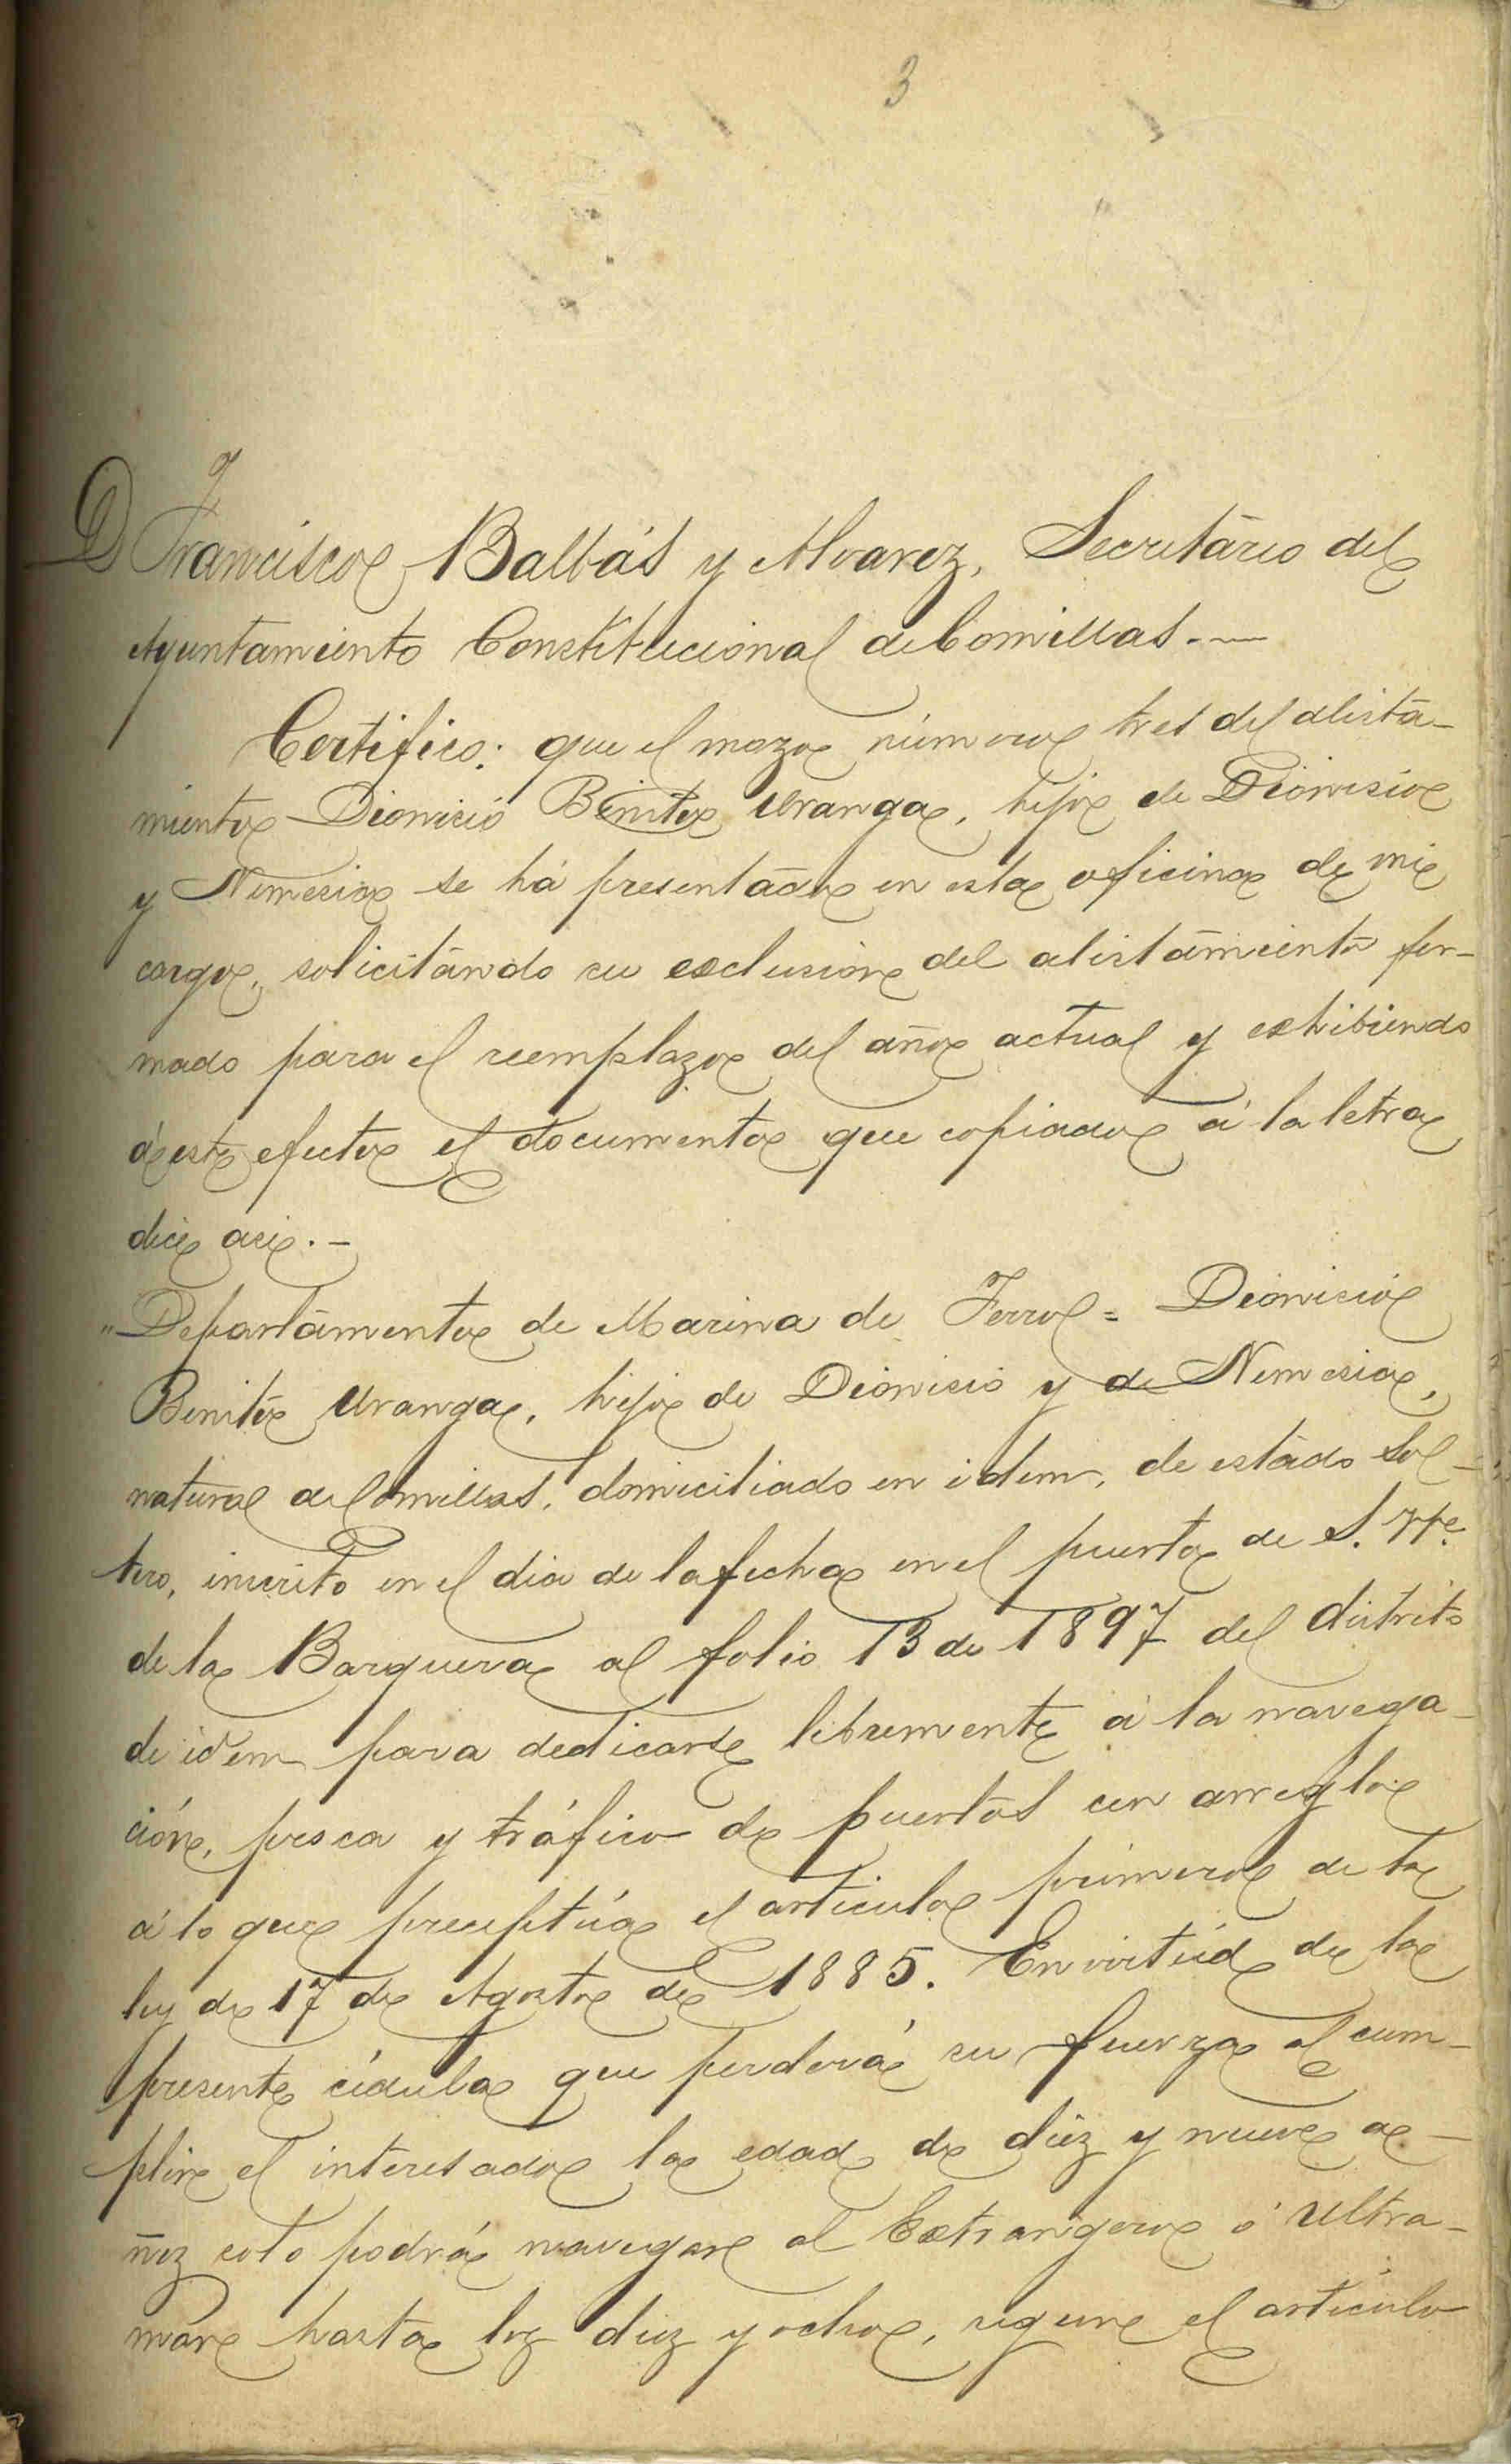 3
D Francisco Balbás y Alvarez, Secretário del
Ayuntamiento Constitucional de Comillas.—
Certifico: que el mozo número tres del alista-
miento Dionisio Benitez Uranga, hijo de Dionisio
y Nemesia se há presentado en esta oficina de mi
cargo, solicitando su exclusion del alistamiento for-
mado para el reemplazo del año actual y exhibiendo
á este efecto el documento que copiado á la letra
dice asi.-
"Departamento de Marina de Ferrol= Dionisio
Benitez Uranga, hijo de Dionisio y de Nemesia,
natural de Comillas, domiciliado en idem, de estado sol-
tero, inscrito en el dia de la fecha en el puerto de S. Vte.
de la Barquera al folio 13 de 1897 del distrito
de idem para dedicarse libremente á la navega-
ción, pesca y tráfico de puertos con arreglo
á lo que preceptúa el articulo primero de la
ley de 17 de Agosto de 1885. En virtud de la
presente cédula que perderá su fuerza al cum-
plir el interesado la edad de diez y nueve a-
ñoz solo podrá navegar al Extrangero ó Ultra-
mar hasta loz diez y ocho, segun el artículo